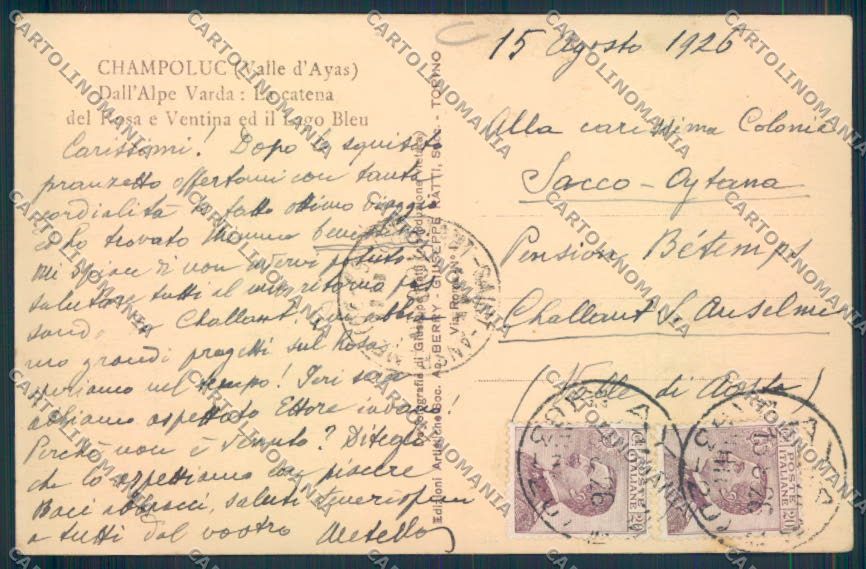 CHAMPOLUC (Valle d'Ayas)
Dall'Alpe Varda: La catena
del Rosa e Ventina ed il Lago Bleu
Carissimi! Dopo lo squisito
pranzetto offertomi con tanta
cordialità ho fatto ottimo viaggio
ed ho trovato Mamma benissimo
Mi spiace di non avervi potuto
salutare tutti al mio ritorno pas
sando Challant! Qui abbia
mo grandi progetti sul Rosa!
speriamo nel tempo! Ieri sera
abbiamo aspettato Ettore invano!
Perchè non è venuto? Ditegli
che lo aspettiamo con piacere
Baci abbracci, saluti
a tutti dal vostro Metello
Fotografie di Giuseppe Ratti (Riproduzione vietata)
Edizioni Artistiche Soc. A. BERRY - GIUSEPPE RATTI, Succ. - TORINO
Via Roma
15 Agosto 1926
Alla carissima Colonia
Sacco - Aytana
Pension Bétemps
Challant S. Anselme
(Valle di Aosta)
POSTE
ITALIANE
POSTE
ITALIANE
CARTOLINOMANIA